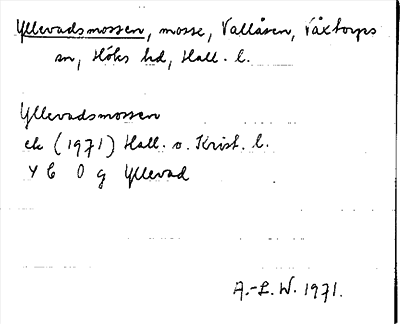 Yllevadsmossen, mosse, Vallåsen, Våxtorps
sn, Höks hd, Hall. l.
Yllevadsmossen
ek (1971) Hall. o. Krist. l.
4 C 0 g Yllevad
A.-L. W. 1971.